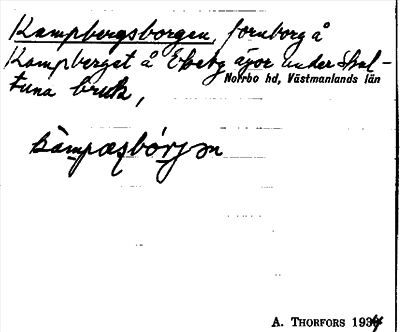 Kampbergsborgen, fornborg å
Kampberget å Ekeby ägor under Skul-
tuna bruk,
Norrbo hd, Västmanlands län
A. THORFORS 1934